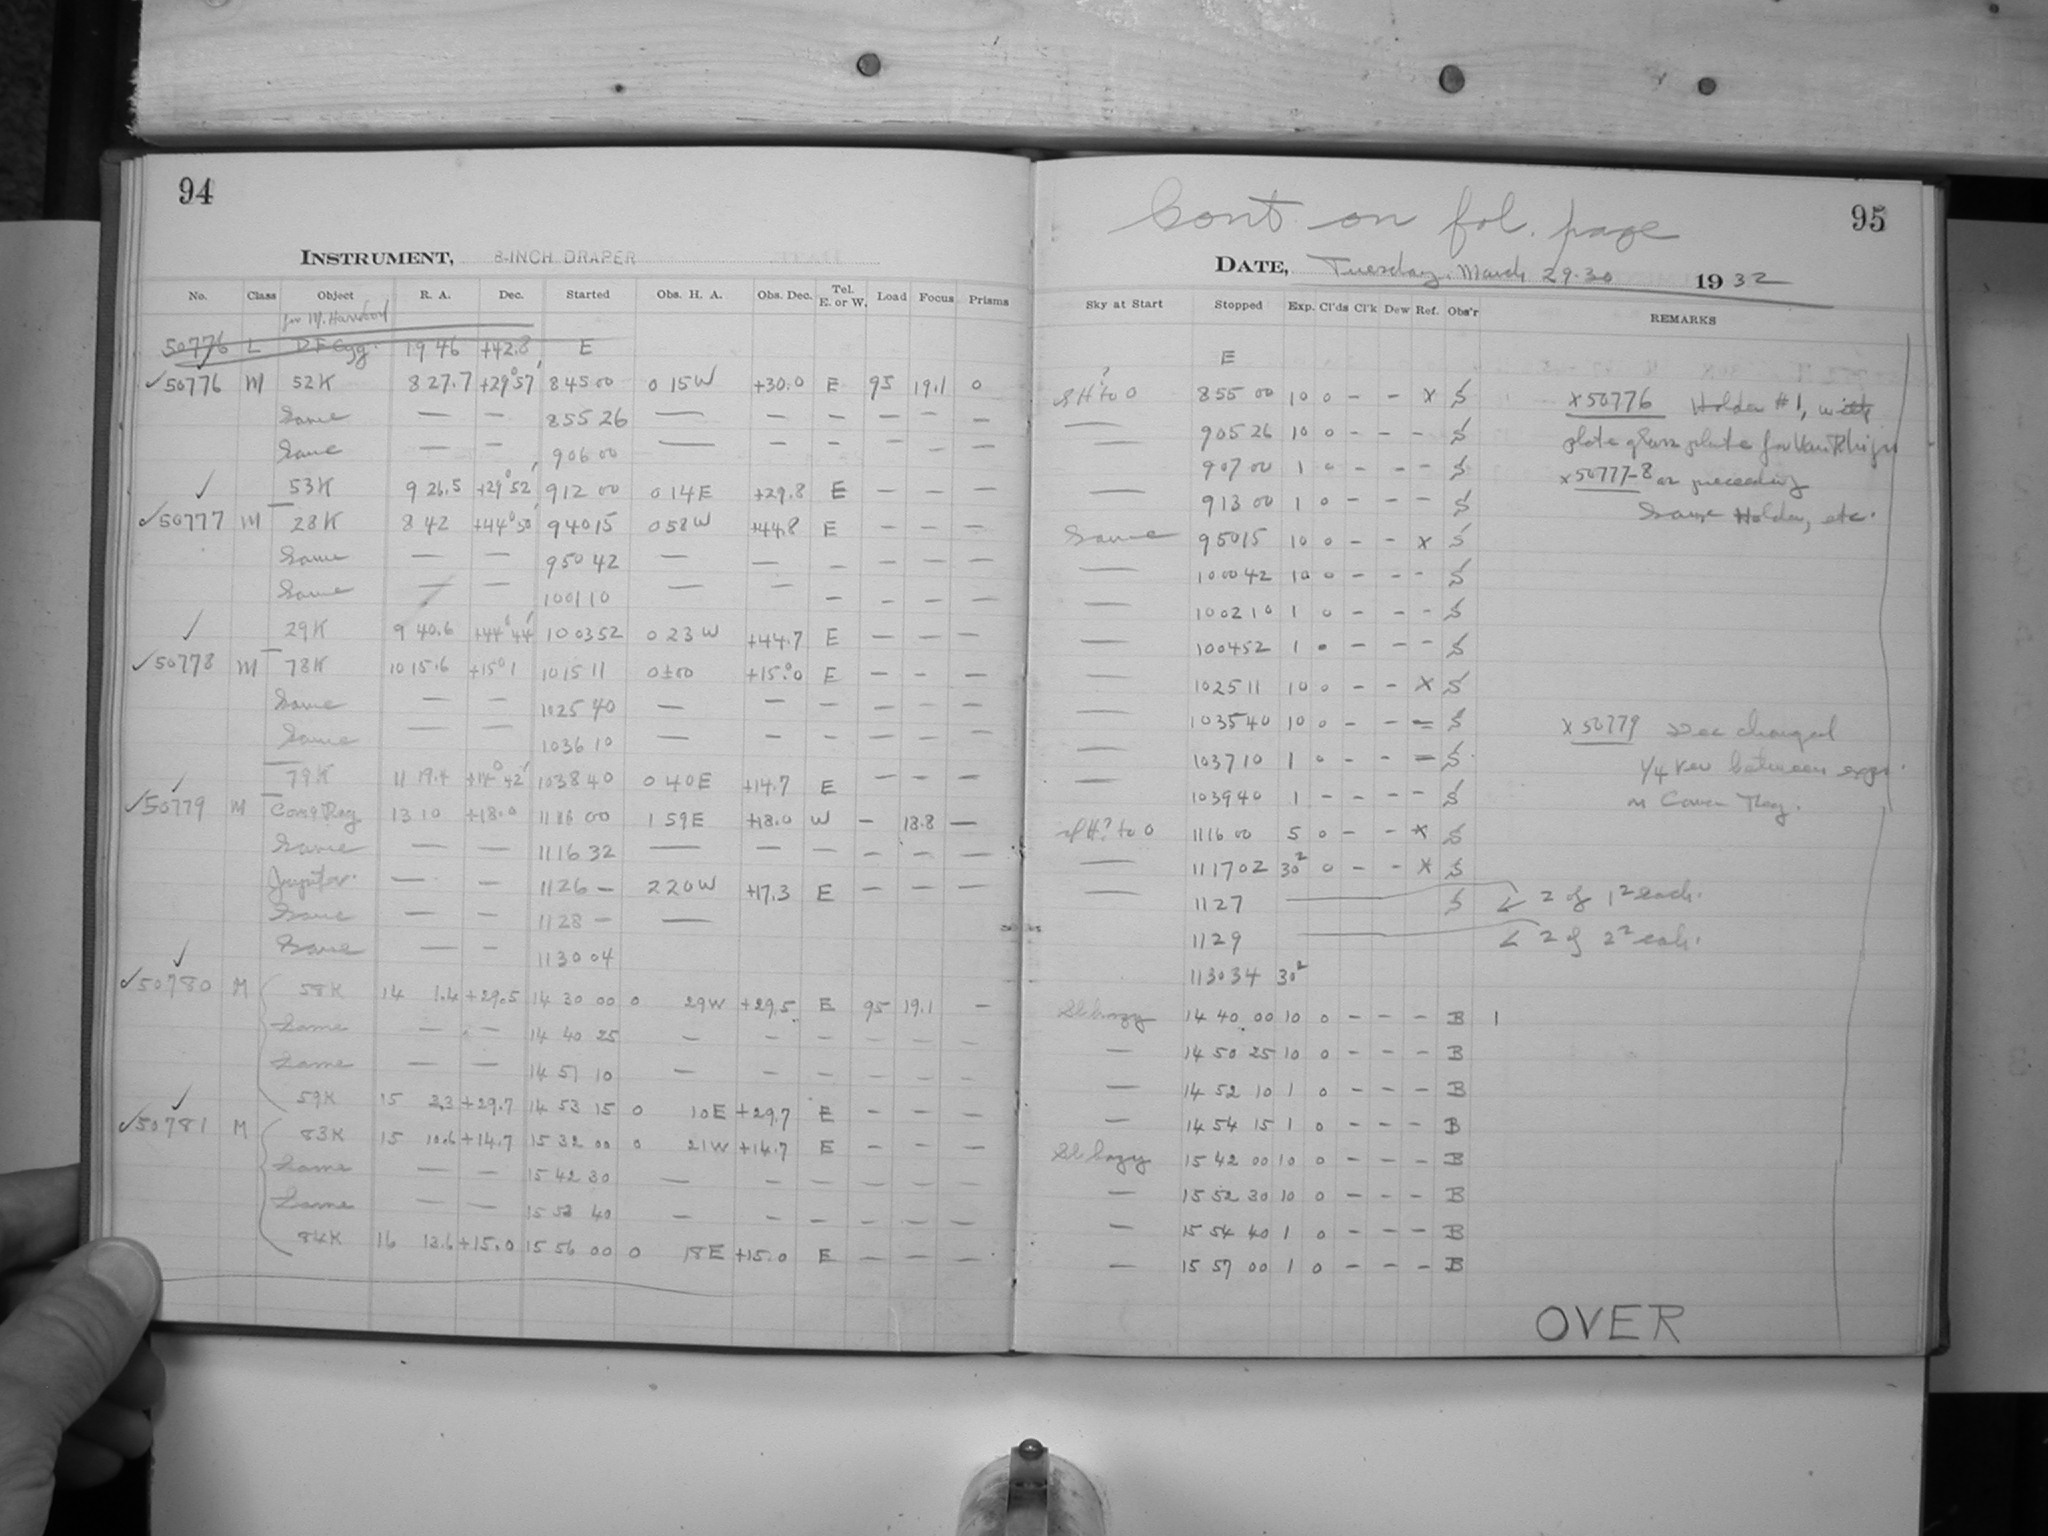 94
INSTRUMENT, 8-INCH DRAPER
No. Class Object R. A. Dec. Started Obs. H. A. Obs. Dec. Tel. E. or W. Load Focus Prisms
for M. Harwood
50776 L 19 46 +42.8 E
✓50776 M 52K 8 27.7 +29°57' 8 45 00 0 15W +30.0 E 95 19.1 0
Same — — 8 55 26 — — — — — —
Same — — 9 06 00 — — — — — —
✓ 53K 9 26.5 +29°52' 9 12 00 0 14E +29.8 E — — —
✓50777 M 28K 8 42 +44°50' 9 40 15 0 58W +44.8 E — — —
Same — — 9 50 42 — — — — — —
Same — — 10 01 10 — — — — — —
✓ 29K 9 40.6 +44°44' 10 03 52 0 23W +44.7 E — — —
✓50778 M 78K 10 15.6 +15°1 10 15 11 0±00 +15.0 E — — —
Same — — 10 25 40 — — — — — —
Same — — 10 36 10 — — — — — —
79K 11 19.4 +14°42' 10 38 40 0 40E +14.7 E — — —
✓50779 M 13 10 +18.0 11 16 00 1 59E +18.0 W — 18.8 —
Same — — 11 16 32 — — — — — —
Jupiter — — 11 26 — 2 20W +17.3 E — — —
Same — — 11 28 — —
Same — — 11 30 04
✓50780 M 58K 14 1.4 +29.5 14 30 00 0 29W +29.5 E 95 19.1 —
Same — — 14 40 25 — — — — — —
Same — — 14 51 10 — — — — — —
59K 15 3.3 +29.7 14 53 15 0 10E +29.7 E — — —
✓50781 M 83K 15 10.6 +14.7 15 32 00 0 21W +14.7 E — — —
Same — — 15 42 30 — — — — — —
Same — — 15 53 40 — — — — — —
84K 16 13.6 +15.0 15 56 00 0 18E +15.0 E — — —
Cont. on fol. page
95
DATE, Tuesday, March 29-30 1932
Sky at Start Stopped Exp. Cl'ds Cl'k Dew Ref. Obs'r REMARKS
E
SH? to 0 8 55 00 10 0 - - x S x50776 Holder #1, with
— 9 05 26 10 0 - - - S plate glass plate for
— 9 07 00 1 0 - - - S x50777-8 as preceding
— 9 13 00 1 0 - - - S Same Holder, etc.
Same 9 50 15 10 0 - - x S
— 10 00 42 10 0 - - - S
— 10 02 10 1 0 - - - S
— 10 04 52 1 0 - - - S
— 10 25 11 10 0 - - x S
— 10 35 40 10 0 - - - S x50779 Dec changed
— 10 37 10 1 0 - - - S 1/4 rev between exps.
— 10 39 40 1 - - - - S
SH? to 0 11 16 00 5 0 - - x S
— 11 17 02 30s 0 - - x S
— 11 27 S 2 of 1s each.
11 29 2 of 2s each.
11 30 34 30s
Sl. hazy 14 40 00 10 0 - - - B 1
— 14 50 25 10 0 - - - B
— 14 52 10 1 0 - - - B
— 14 54 15 1 0 - - - B
Sl. hazy 15 42 00 10 0 - - - B
— 15 52 30 10 0 - - - B
— 15 54 40 1 0 - - - B
— 15 57 00 1 0 - - - B
OVER